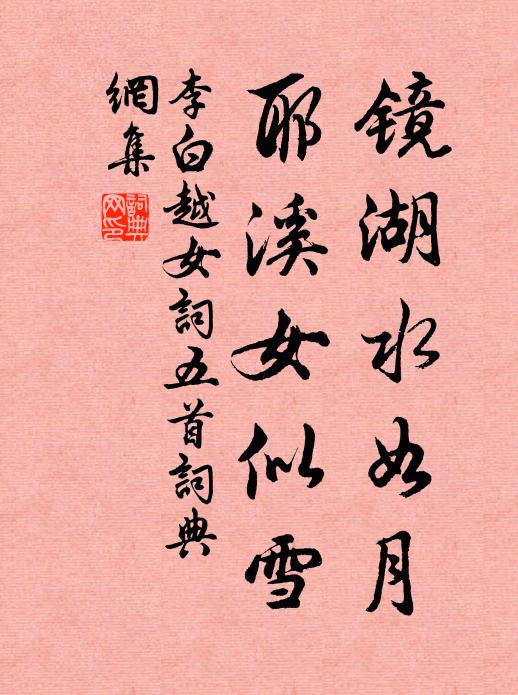 镜湖水如月
耶溪女似雪
李白越女詞五首詞典
網集
詞典
网印